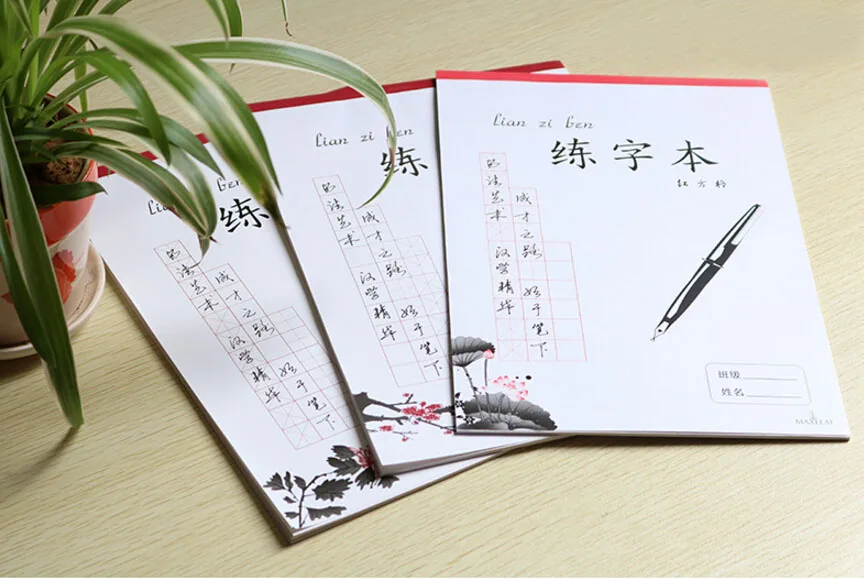 Lian zi ben
练字本
方格
书法艺术 汉学精华
成才之路 始于笔下
班级
姓名
MAXLEAF
Lian zi ben
练
书法艺术 汉学精华
成才之路 始于笔下
ben
练
书法艺术 汉学精华
成才之路 始于笔下